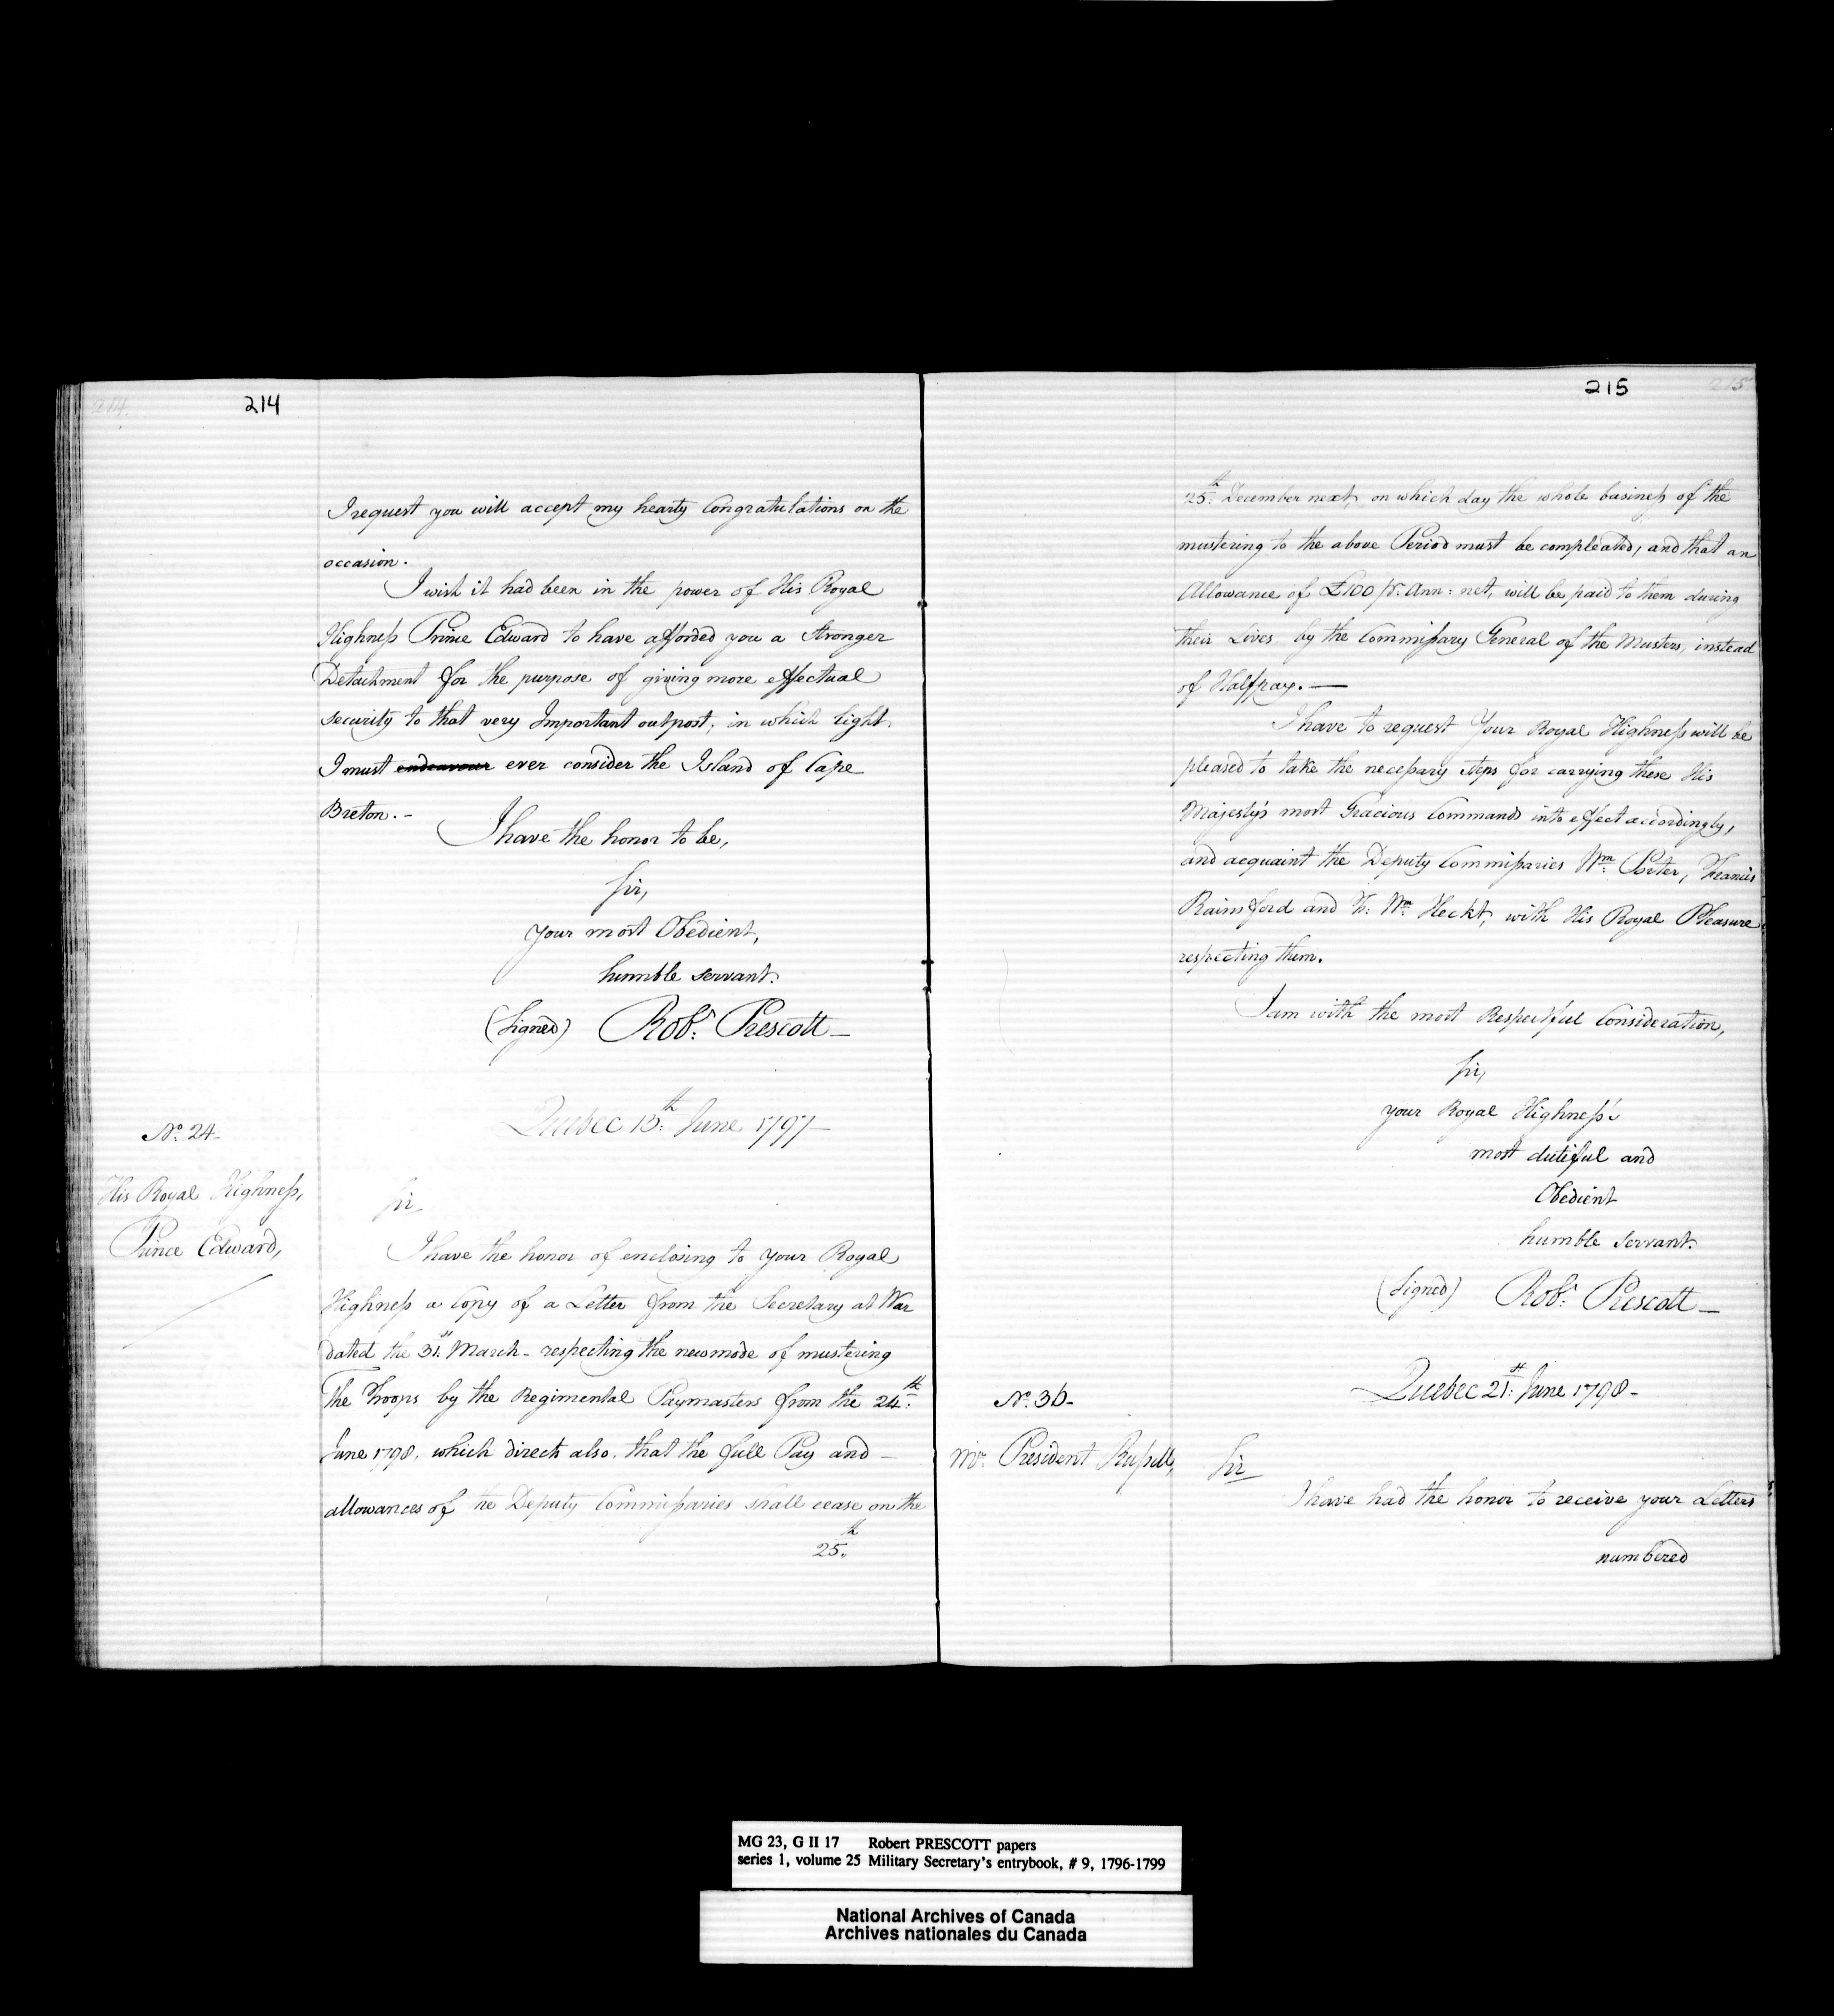 214. 214
I request you will accept my hearty Congratulations on the
occasion.
I wish it had been in the power of His Royal
Highness Prince Edward to have afforded you a Stronger
Detachment for the purpose of giving more effectual
security to that very Important outpost; in which light
I must endeavour ever consider the Island of Cape
Breton. -
I have the honor to be,
Sir,
your most Obedient,
humble servant.
(Signed) Robt. Prescott -
Quebec 13th June 1797 -
No. 24 -
His Royal Highness,
Prince Edward,
Sir
I have the honor of enclosing to your Royal
Highness a Copy of a Letter from the Secretary at War
dated the 31st March - respecting the new mode of mustering
The Troops by the Regimental Paymasters from the 24th
June 1798, which directs also, that the full Pay and -
allowances of the Deputy Commissaries shall cease on the
25th
215 215
25th December next, on which day the whole business of the
mustering to the above Period must be compleated, and that an
Allowance of £100 pr. Ann: net, will be paid to them during
their Lives by the Commissary General of the Musters, instead
of Halfpay. -
I have to request Your Royal Highness will be
pleased to take the necessary steps for carrying these His
Majesty's most Gracious Commands into effect accordingly,
and acquaint the Deputy Commissaries Wm. Porter, Francis
Rainsford and Wm. Heckt, with His Royal Pleasure
respecting them.
I am with the most Respectful Consideration,
Sir,
your Royal Highness's
most dutiful and
Obedient
humble Servant.
(Signed) Robt. Prescott -
Quebec 21st June 1798 -
No. 36 -
Mr. President Russell,
Sir
I have had the honor to receive your Letters
numbered
MG 23, G II 17 Robert PRESCOTT papers
series 1, volume 25 Military Secretary's entrybook, # 9, 1796-1799
National Archives of Canada
Archives nationales du Canada